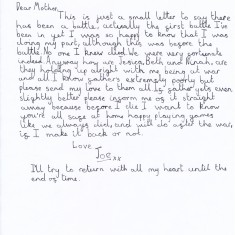 Dear Mother,
This is just a small letter to say there
has been a battle, actually the first battle I've
been in yet I was so happy to know that I was
doing my part, although this was before the
battle. No one I knew died. We were very fortunate
indeed. Anyway how are Jessica, Beth and Mirah, are
they holding up alright with me being at war
and all. I know fathers extremely poorly but
please send my love to them all. If father gets even
slightly better please inform me of it straight
away because before I die I want to know
you're all safe at home happy playing games
like we always did, and will do after the war,
if I make it back or not.
Love
Joe xx
I'll try to return with all my heart until the
end of time.